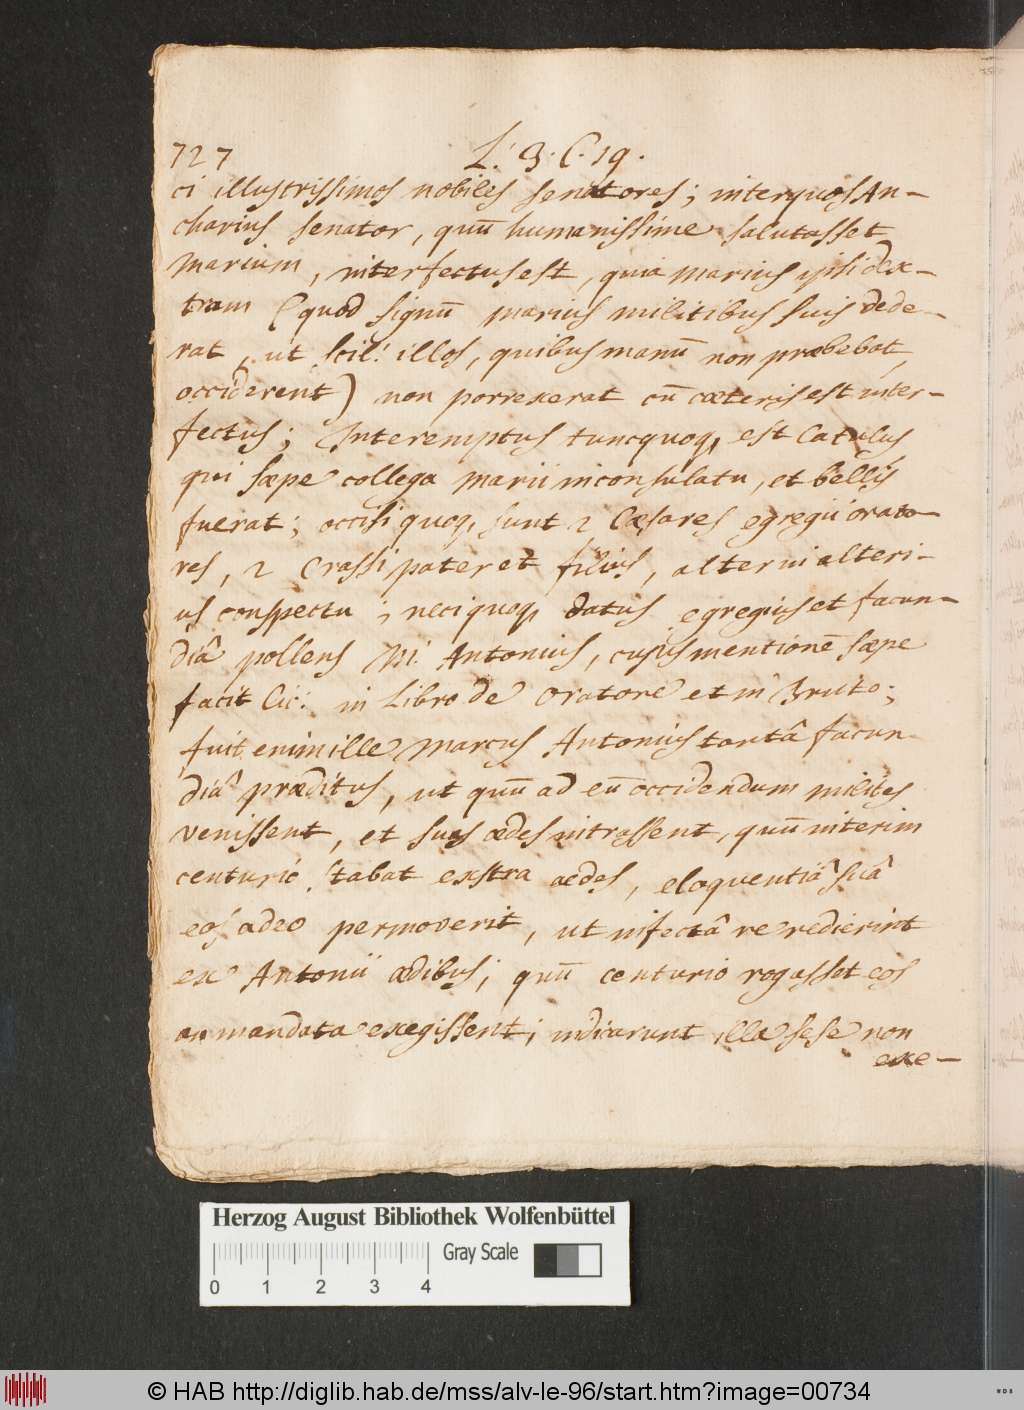 727 L. 3. C. 19.
ci illustrissimos nobiles senatores; inter quos An-
charius senator, quū humanissime salutasset
Marium, interfectus est, quia Marius ipsi dex-
tram (quod signū Marius militibus suis dede-
rat, ut scil: illos, quibus manū non præbebat,
occiderent) non porrexerat cū cæteris est inter-
fectus; Interemptus tunc quoq, est Catulus
qui sæpe collega Marii in consulatu, et bellis
fuerat; occisi quoq, sunt 2 Cæsares egregii orato-
res, 2 Crassi pater et filius, alter in alteri-
us conspectu; neci quoq, datus egregius et facun-
diâ pollens M. Antonius, cujus mentionē sæpe
facit Cic: in Libro de Oratore et in Bruto;
fuit enim ille Marcus Antonius tantâ facun-
diâ præditus, ut quū ad eū occidendum milites
venissent, et suas ædes intrassent, quū interim
centurio stabat exstra ædes, eloquentiâ suâ
eos adeo permoverit, ut infectâ re redierint
ex Antonii ædibus; quū centurio rogasset eos
an mandata exegissent; indicarunt illa sese non
exe-
Herzog August Bibliothek Wolfenbüttel
Gray Scale
0 1 2 3 4
© HAB http://diglib.hab.de/mss/alv-le-96/start.htm?image=00734